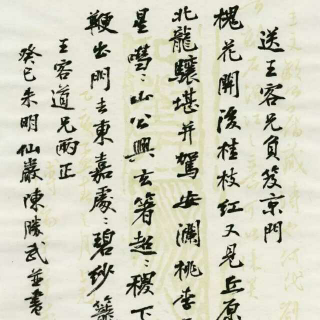 送王容兄負笈京門
槐花開後桂枝紅又見丘原
北龍驤堪并駕安瀾桃李
星嘒〻山公興玄箸超〻稷下
鞭出門去東嘉處〻碧紗籠
王容道兄兩正
癸巳朱明仙巖陳勝武並書